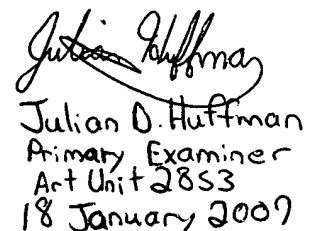 Julian Huffman
Julian D. Huffman
Primary Examiner
Art Unit 2853
18 January 2007